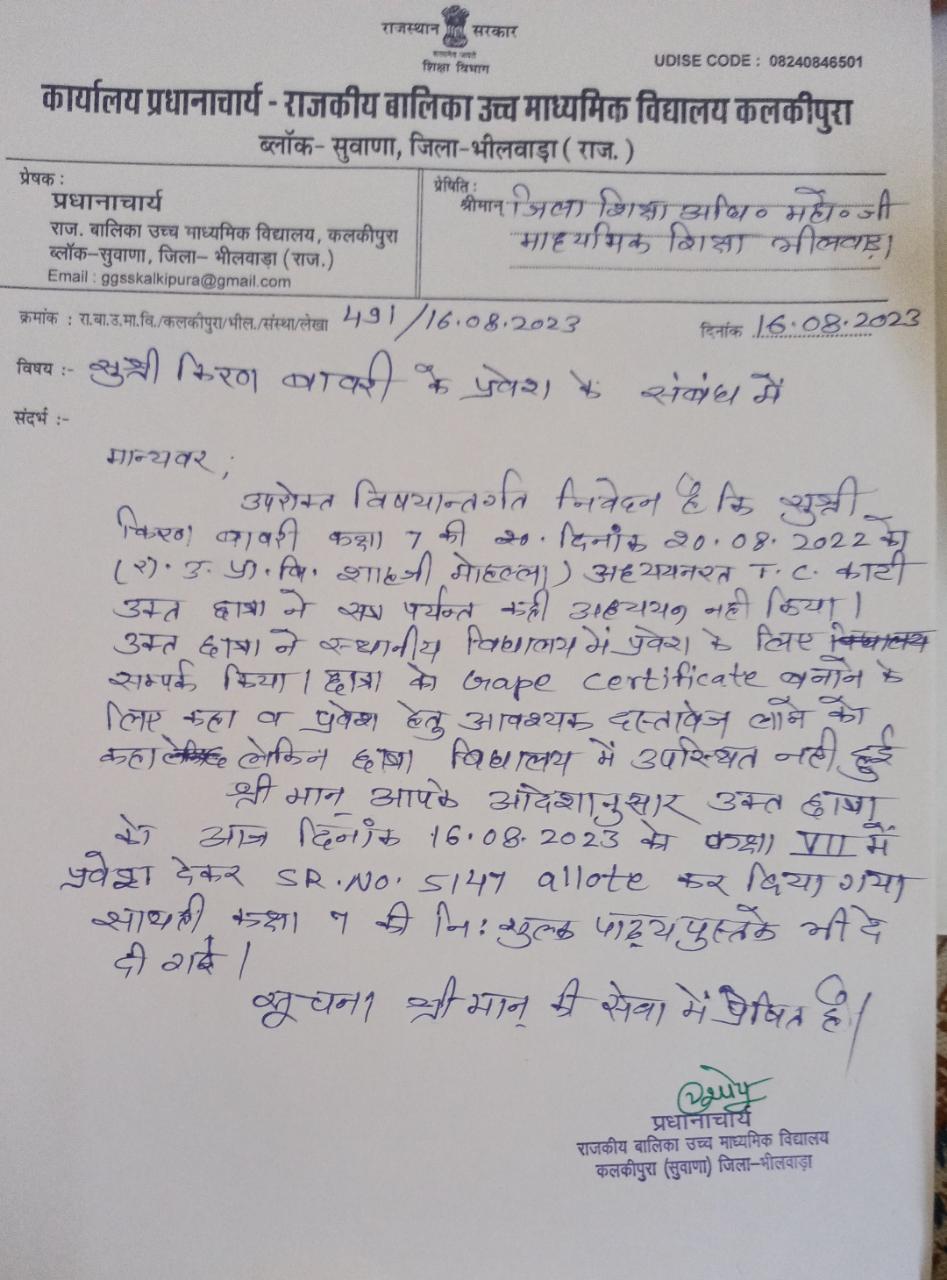 राजस्थान सरकार
सत्यमेव जयते
शिक्षा विभाग
UDISE CODE : 08240846501
कार्यालय प्रधानाचार्य - राजकीय बालिका उच्च माध्यमिक विद्यालय कलकीपुरा
ब्लॉक- सुवाणा, जिला-भीलवाड़ा ( राज. )
प्रेषक :
प्रधानाचार्य
राज. बालिका उच्च माध्यमिक विद्यालय, कलकीपुरा
ब्लॉक-सुवाणा, जिला- भीलवाड़ा (राज.)
Email : ggsskalkipura@gmail.com
प्रेषिति :
श्रीमान् जिला शिक्षा अधि॰ महो॰ जी
माध्यमिक शिक्षा भीलवाड़ा
क्रमांक : रा.बा.उ.मा.वि./कलकीपुरा/भील./संस्था/लेखा 491/16.08.2023 दिनांक 16.08.2023
विषय :- सुश्री किरण बावरी के प्रवेश के संबंध में
संदर्भ :-
मान्यवर,
उपरोक्त विषयान्तर्गत निवेदन है कि सुश्री
किरण बावरी कक्षा 7 की दिनांक 20.08.2022 को
(रा. उ. प्रा. वि. शास्त्री मोहल्ला) अध्ययनरत T.C. काटी
उक्त छात्रा ने पर्यन्त कही अध्ययन नही किया।
उक्त छात्रा ने स्थानीय विद्यालय में प्रवेश के लिए विद्यालय
सम्पर्क किया। छात्रा को Gape certificate बनाने के
लिए कहा व प्रवेश हेतु आवश्यक दस्तावेज लाने को
कहा लेकिन छात्रा विद्यालय में उपस्थित नही हुई
श्री मान् आपके आदेशानुसार उक्त छात्रा
को आज दिनांक 16.08.2023 को कक्षा VII में
प्रवेश देकर SR.NO. 5147 allote कर दिया गया
साथही कक्षा 7 की नि:शुल्क पाठ्यपुस्तके भी दे
दी गई।
सूचना श्री मान् की सेवा में प्रेषित है।
प्रधानाचार्य
राजकीय बालिका उच्च माध्यमिक विद्यालय
कलकीपुरा (सुवाणा) जिला-भीलवाड़ा